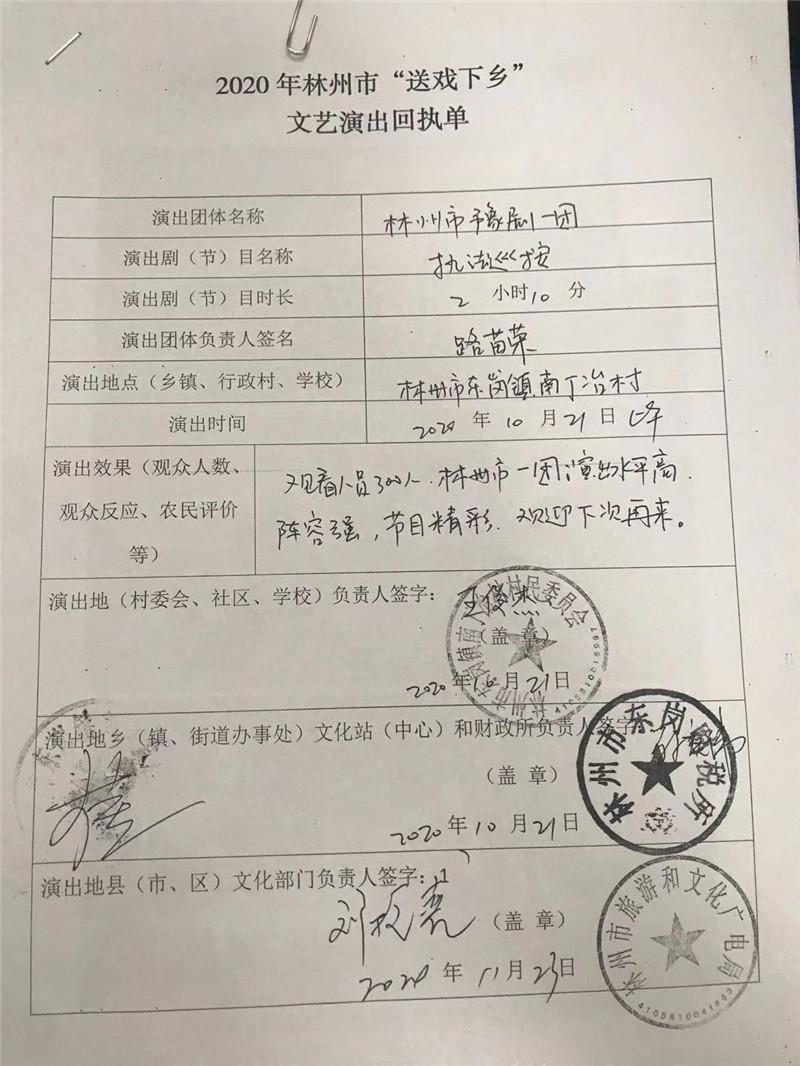 2020年林州市“送戏下乡”
文艺演出回执单
演出团体名称 林州市豫剧一团
演出剧（节）目名称 执法巡按
演出剧（节）目时长 2 小时 10 分
演出团体负责人签名 路苗荣
演出地点（乡镇、行政村、学校） 林州市东岗镇南丁冶村
演出时间 2020 年 10 月 21 日 上午
演出效果（观众人数、
观众反应、农民评价
等）
观看人员300人. 林州市一团演出水平高.
阵容强，节目精彩. 欢迎下次再来。
演出地（村委会、社区、学校）负责人签字： 王俊杰
（盖 章）
村民委员会
2020 年 10 月 21 日
演出地乡（镇、街道办事处）文化站（中心）和财政所负责人签字
（盖 章）
林州市东岗 税所
2020 年 10 月 21 日
演出地县（市、区）文化部门负责人签字：
（盖 章）
林州市旅游和文化广电局
4105810041663
2020 年 11 月 23 日